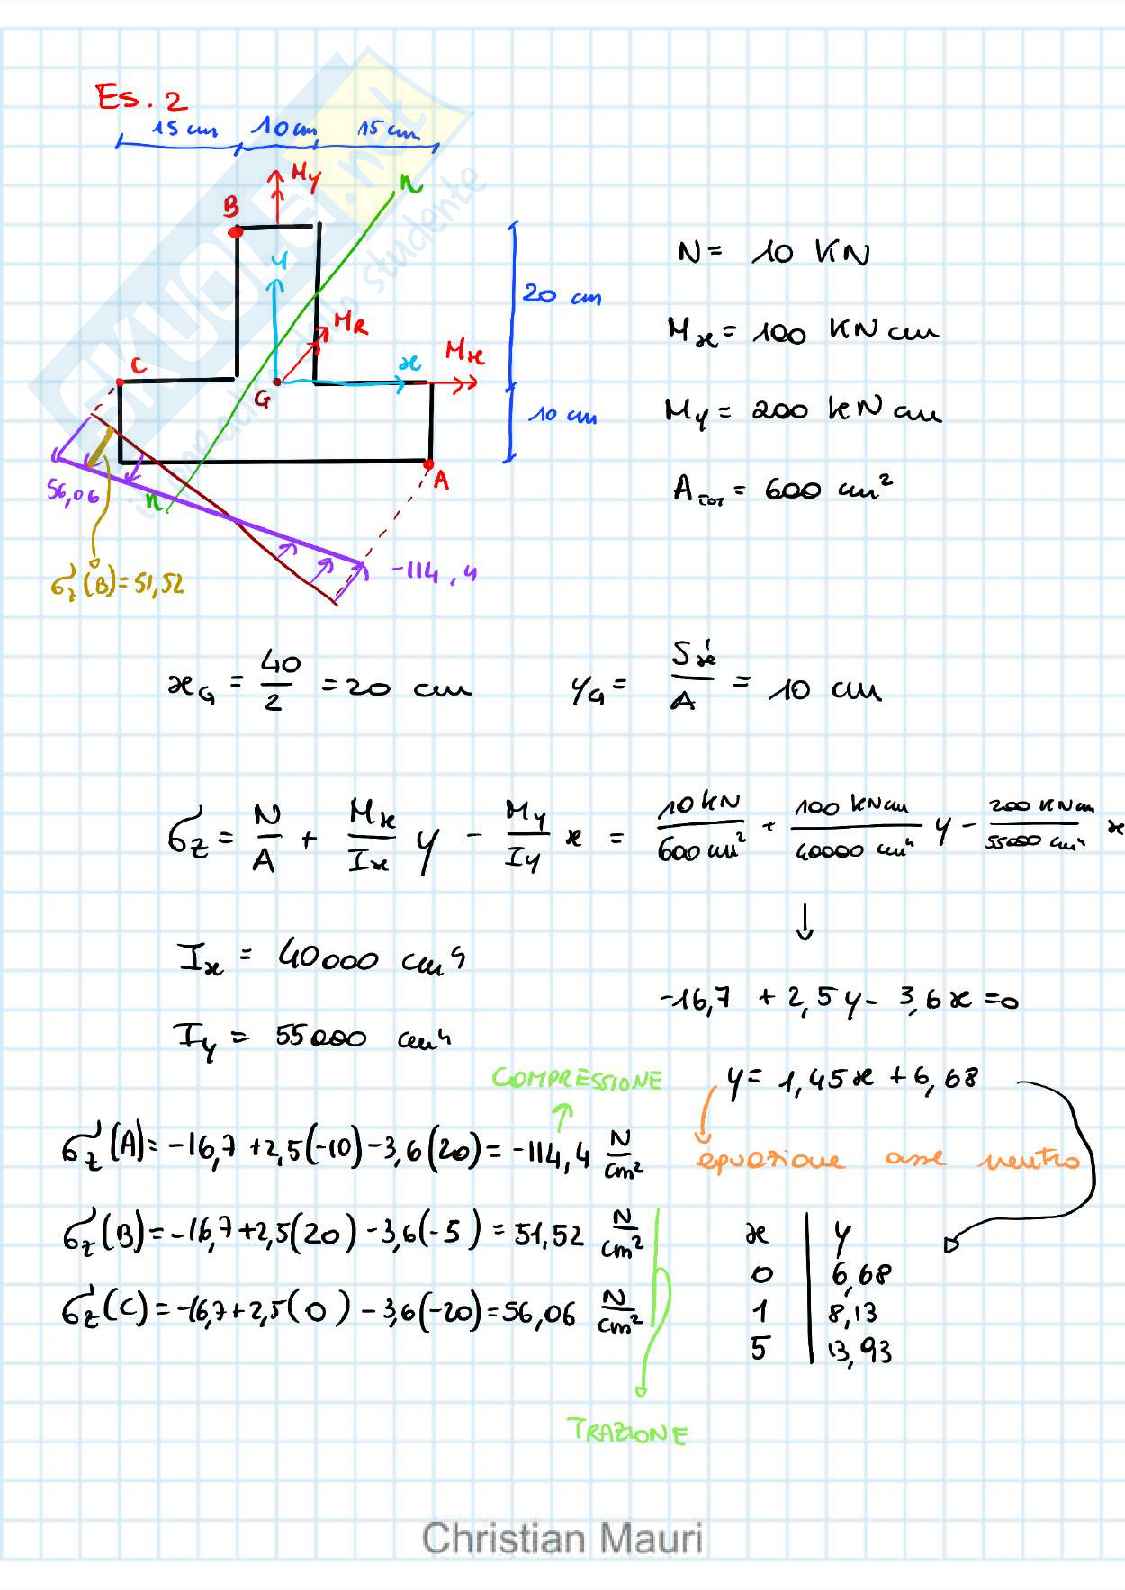 Es. 2
15 cm 10 cm 15 cm
My
n
B
y
MR
C
x
Mx
G
20 cm
10 cm
A
56,06
n
-114,4
σz(B)=51,52
N = 10 KN
Mx = 100 KN cm
My = 200 KN cm
ATOT = 600 cm²
xG = 40/2 = 20 cm
yG = Sx'/A = 10 cm
σz = N/A + Mx/Ix y - My/Iy x = 10 KN/600 cm² + 100 KNcm/40000 cm⁴ y - 200 KNcm/55000 cm⁴ x
↓
Ix = 40000 cm⁴
-16,7 + 2,5y - 3,6x = 0
Iy = 55000 cm⁴
COMPRESSIONE
y = 1,45x + 6,68
σz(A) = -16,7 + 2,5(-10) - 3,6(20) = -114,4 N/cm²
equazione asse neutro
σz(B) = -16,7 + 2,5(20) - 3,6(-5) = 51,52 N/cm²
σz(C) = -16,7 + 2,5(0) - 3,6(-20) = 56,06 N/cm²
x y
0 6,68
1 8,13
5 13,93
TRAZIONE
Christian Mauri